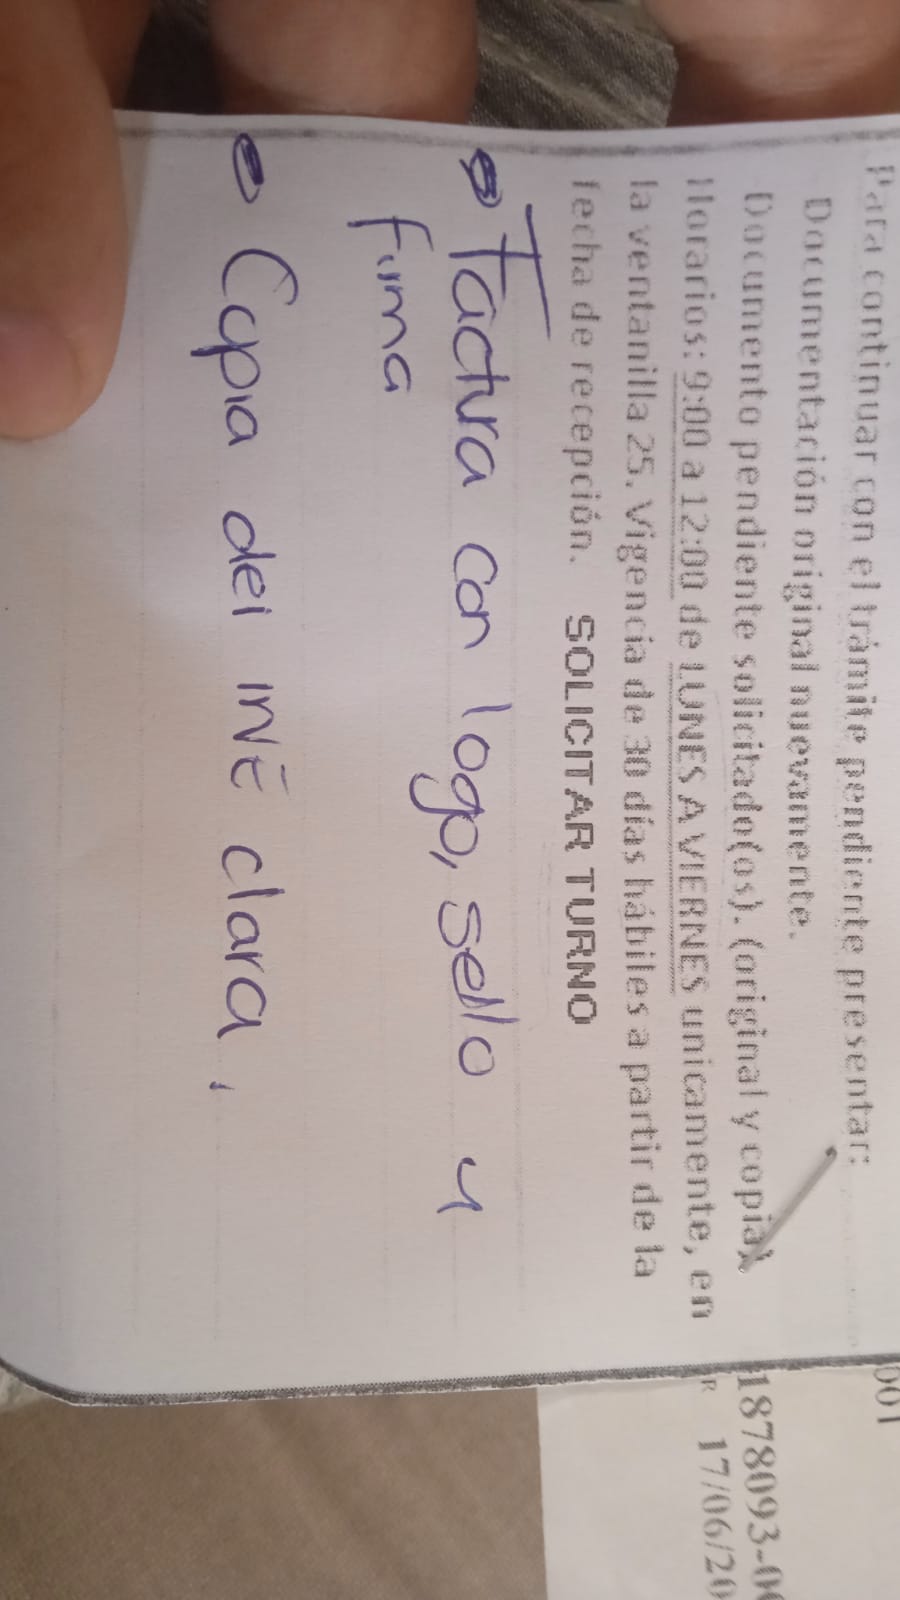 Para continuar con el trámite pendiente presentar:
Documentación original nuevamente.
Documento pendiente solicitado(os). (original y copia).
Horarios: 9:00 a 12:00 de LUNES A VIERNES unicamente, en
la ventanilla 25. Vigencia de 30 días hábiles a partir de la
fecha de recepción. SOLICITAR TURNO
Factura con logo, sello y
firma
Copia del INE clara,
001
1878093-00
R 17/06/20